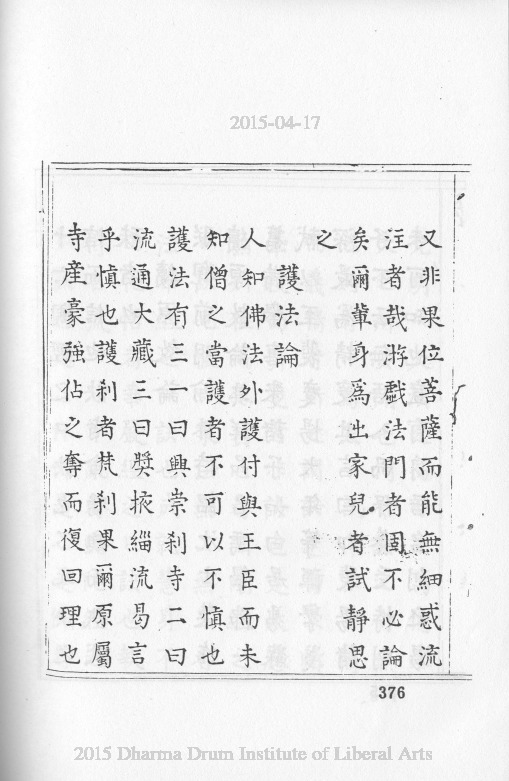 2015-04-17
又非果位菩薩而能無細惑流
注者哉游戲法門者固不必論
矣爾輩身爲出家兒者試靜思
之
護法論
人知佛法外護付與王臣而未
知僧之當護者不可以不慎也
護法有三一曰興崇刹寺二曰
流通大藏三曰獎掖緇流曷言
乎慎也護刹者梵刹果爾原屬
寺産豪強佔之奪而復回理也
376
2015 Dharma Drum Institute of Liberal Arts